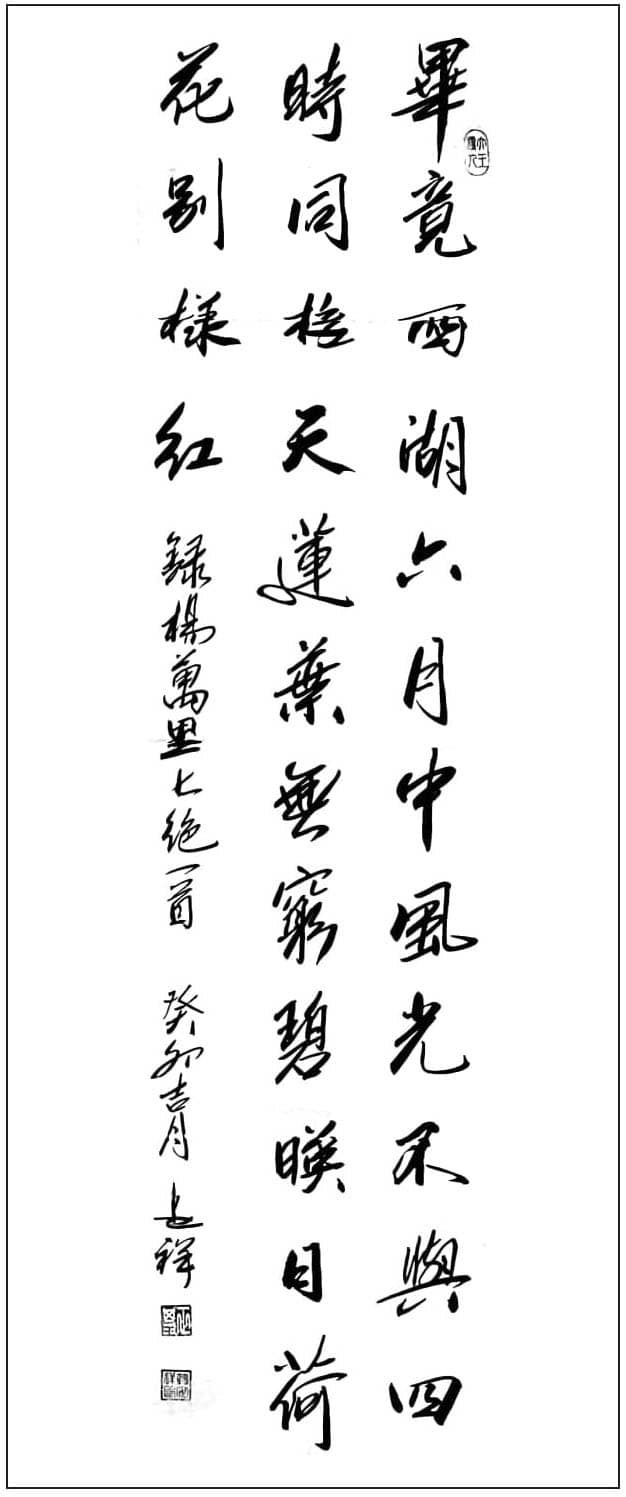 畢竟西湖六月中風光不與四
時同接天蓮葉無窮碧暎日荷
花别樣紅 録楊萬里七絶一首 癸卯吉月 祥